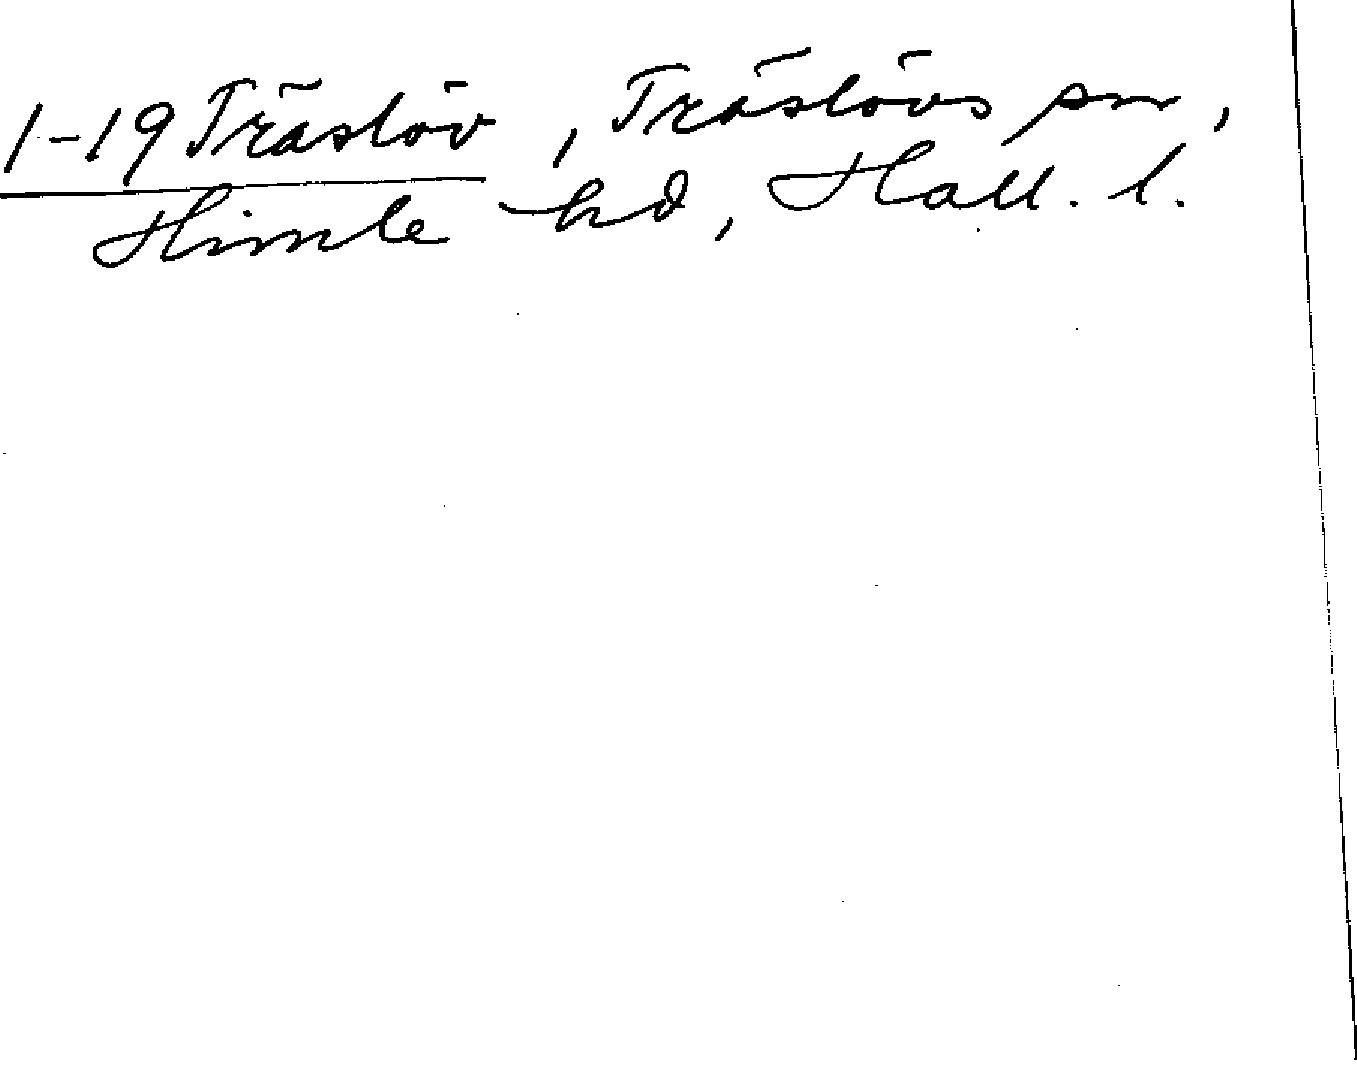 1-19 Träslöv, Träslövs sn,
Himle hd, Hall. l.